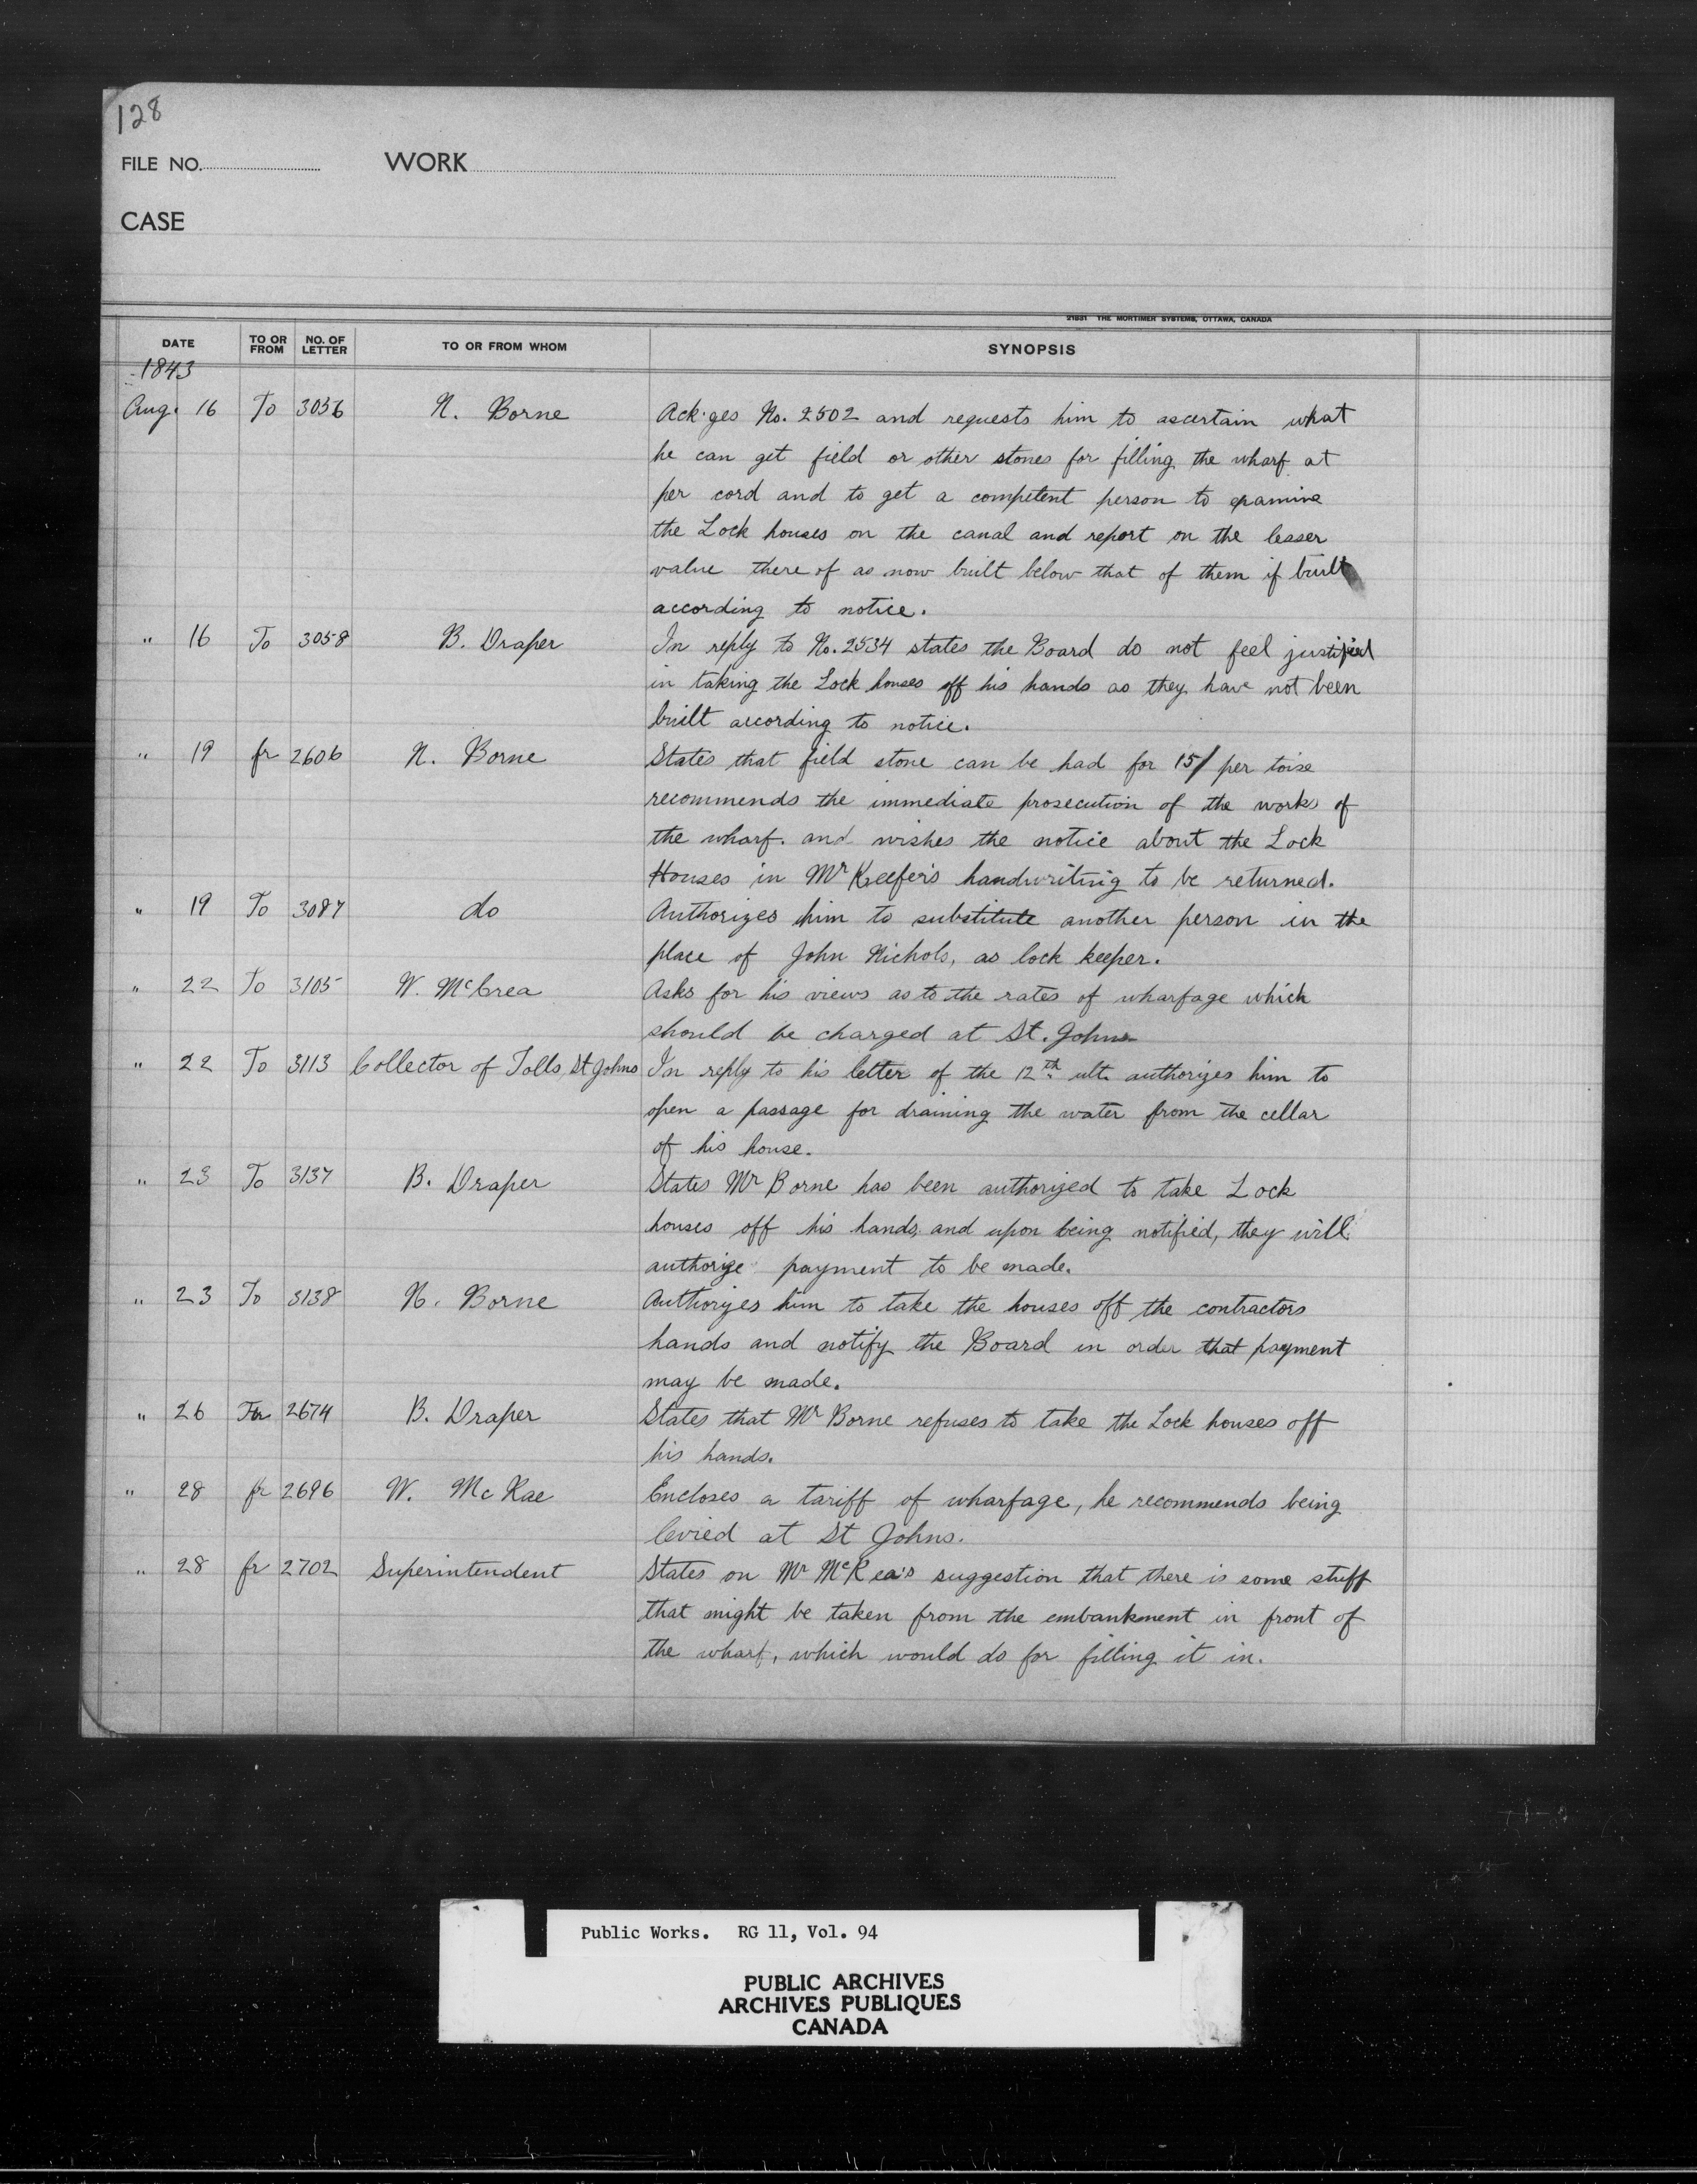 128
FILE NO. WORK
CASE
21831 THE MORTIMER SYSTEMS, OTTAWA, CANADA
DATE TO OR FROM NO. OF LETTER TO OR FROM WHOM SYNOPSIS
1843
Aug. 16 To 3056 N. Borne Ack'ges No. 2502 and requests him to ascertain what
he can get field or other stones for filling the wharf at
per cord and to get a competent person to examine
the Lock houses on the canal and report on the lesser
value there of as now built below that of them if built
according to notice.
" 16 To 3058 B. Draper In reply to No. 2534 states the Board do not feel justified
in taking the Lock houses off his hands as they have not been
built according to notice.
" 19 fr 2606 N. Borne States that field stone can be had for 15/ per toise
recommends the immediate prosecution of the works of
the wharf. and wishes the notice about the Lock
Houses in Mr Keefer's handwriting to be returned.
" 19 To 3087 do Authorizes him to substitute another person in the
place of John Nichols, as lock keeper.
" 22 To 3105 W. McCrea Asks for his views as to the rates of wharfage which
should be charged at St. Johns
" 22 To 3113 Collector of Tolls, St Johns In reply to his letter of the 12th ult. authorizes him to
open a passage for draining the water from the cellar
of his house.
" 23 To 3137 B. Draper States Mr Borne has been authorized to take Lock
houses off his hands, and upon being notified, they will
authorize payment to be made.
" 23 To 3138 N. Borne Authorizes him to take the houses off the contractors
hands and notify the Board in order that payment
may be made.
" 26 Fr 2674 B. Draper States that Mr Borne refuses to take the Lock houses off
his hands.
" 28 fr 2696 W. Mc Rae Encloses a tariff of wharfage, he recommends being
levied at St Johns.
" 28 fr 2702 Superintendent States on Mr McRea's suggestion that there is some stuff
that might be taken from the embankment in front of
the wharf, which would do for filling it in.
Public Works. RG 11, Vol. 94
PUBLIC ARCHIVES
ARCHIVES PUBLIQUES
CANADA